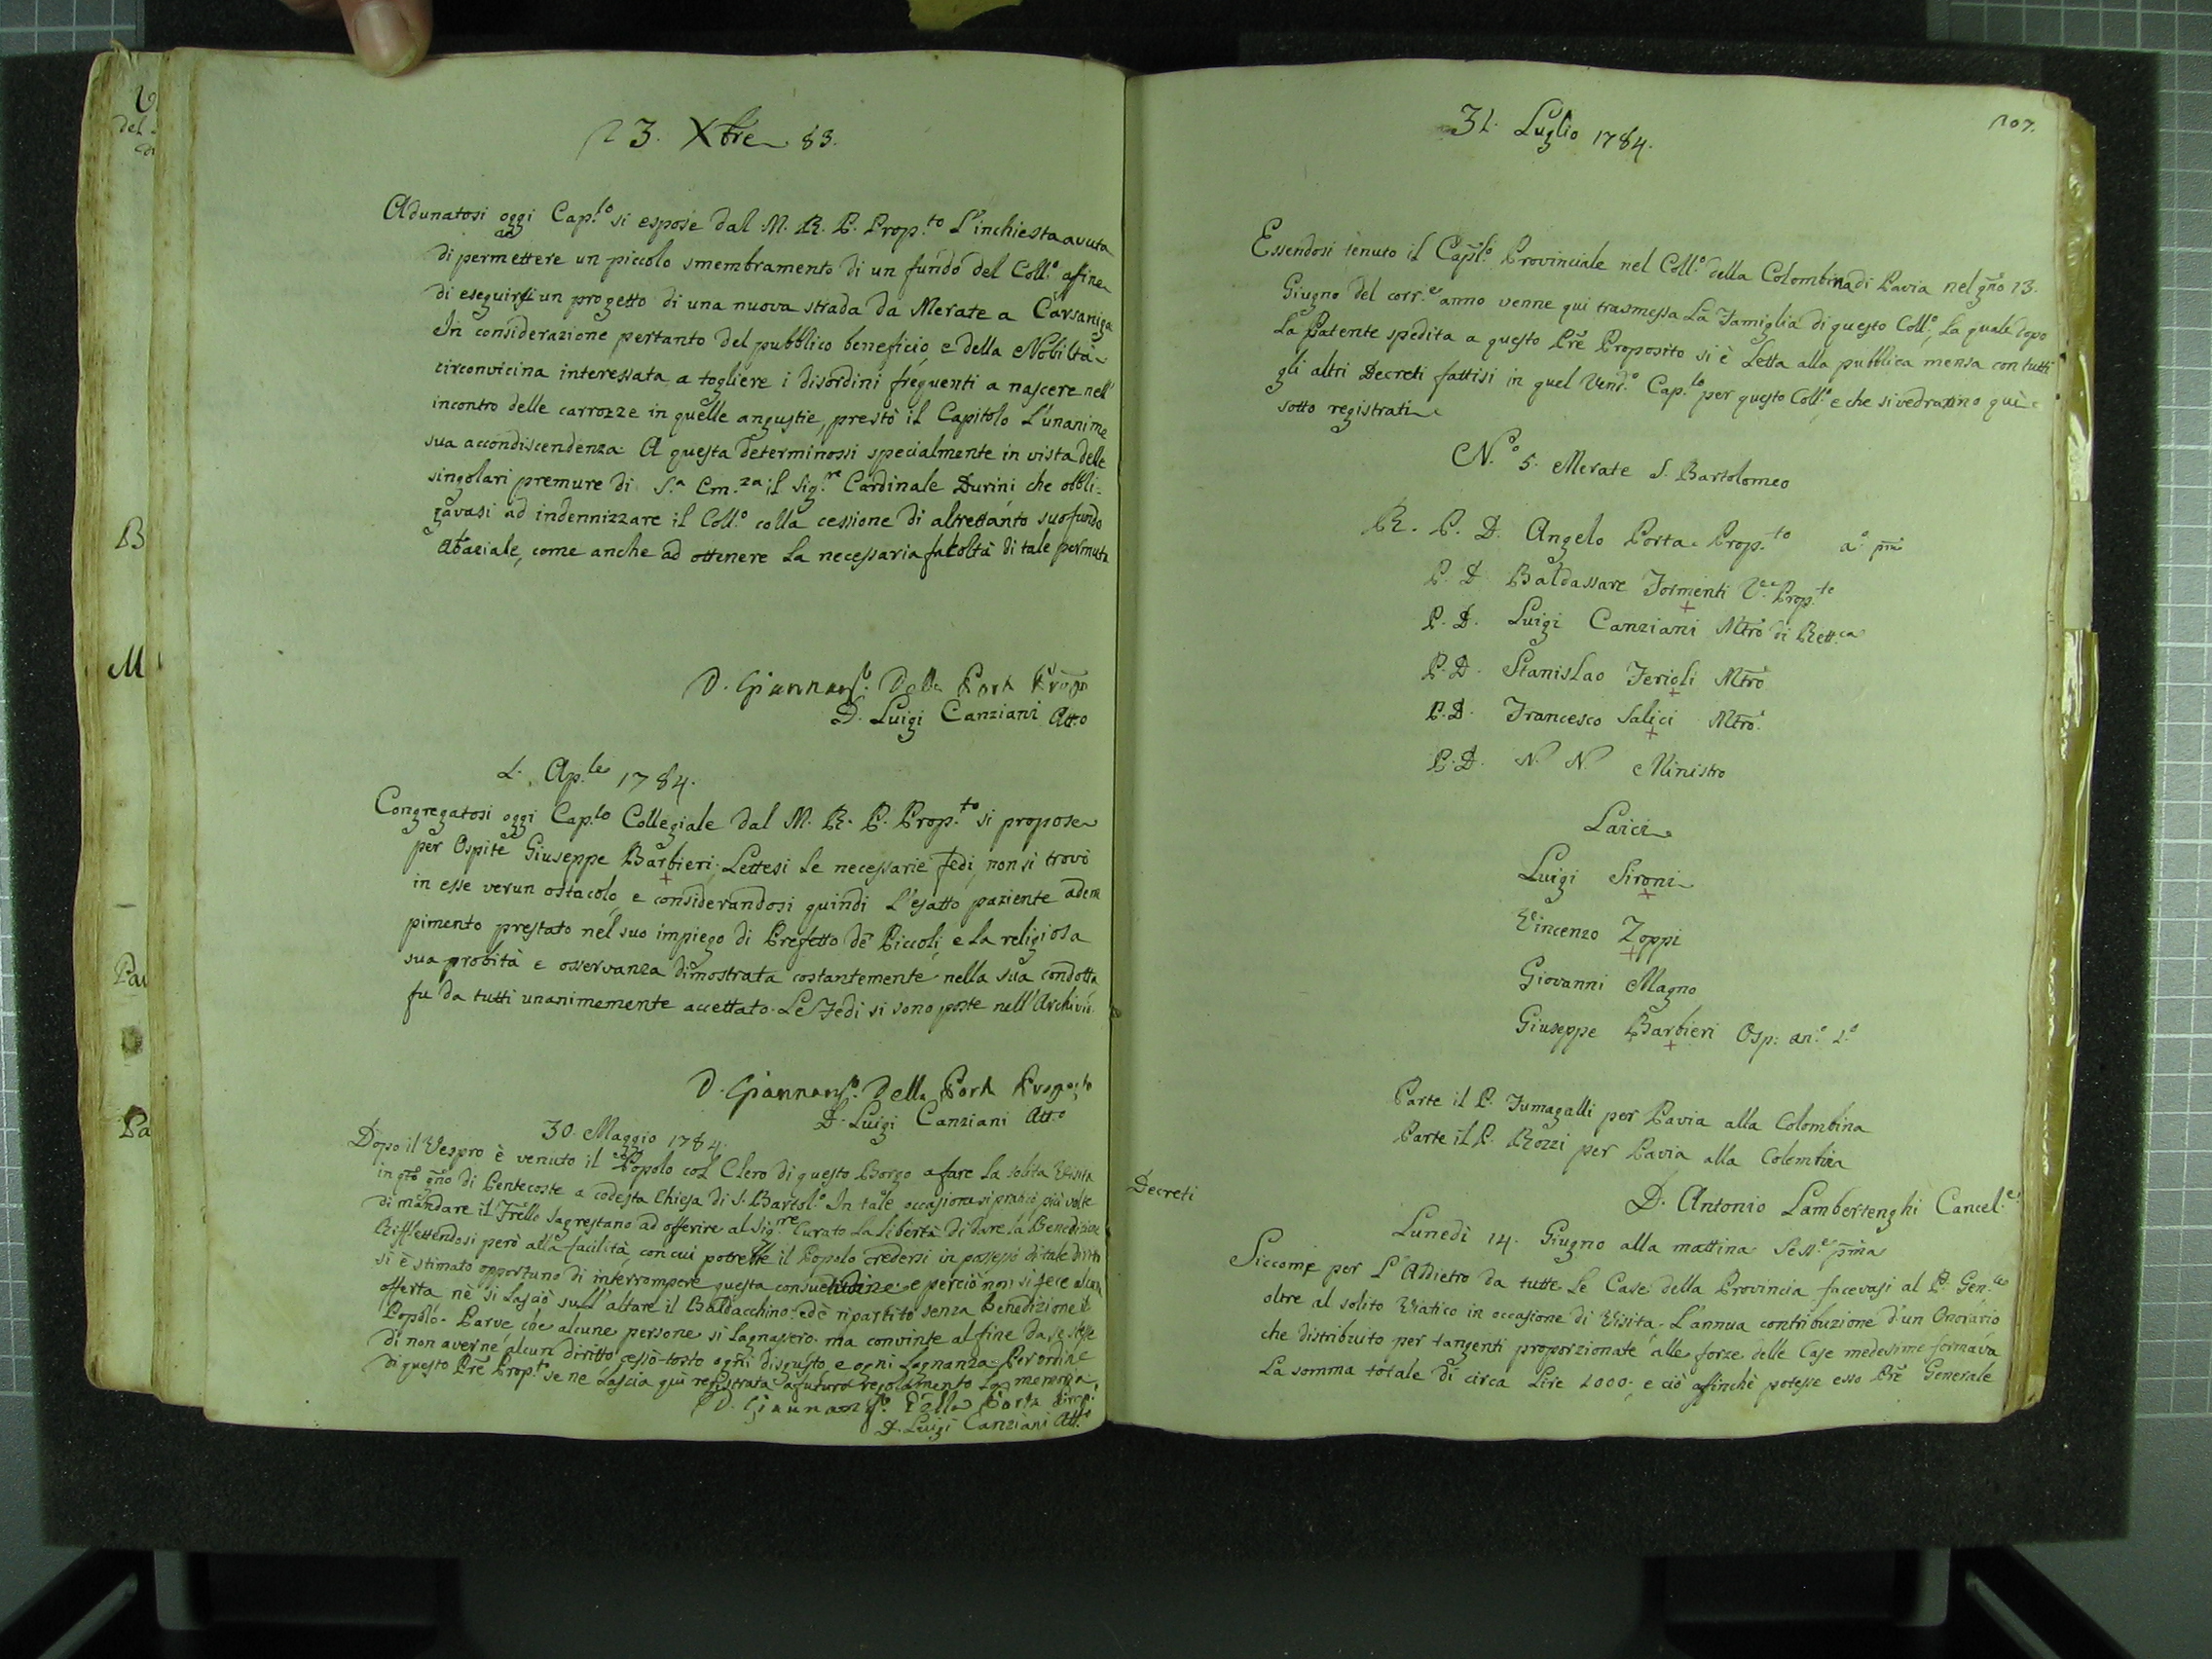 23. Xbre 83.
Adunatosi oggi Cap.lo si espose dal M. R. P. Prop.to L'inchiesta avuta
di permettere un piccolo smembramento di un fundo del Coll.o affine
di eseguirsi un progetto di una nuova strada da Merate a Carsaniga
In considerazione pertanto del pubblico beneficio, e della Nobiltà
circonvicina interessata a togliere i disordini frequenti a nascere nell'
incontro delle carrozze in quelle angustie, prestò il Capitolo L'unanime
sua accondiscendenza. A questa determinossi specialmente in vista delle
singolari premure di S.a Em.za il Sig.re Cardinale Durini che obbli=
gavasi ad indennizzare il Coll.o colla cessione di altrettanto suo fundo
abaziale, come anche ad ottenere la necessaria facoltà di tale permuta
D. Giannans.o Della Porta
D. Luigi Canziani Att.o
1. Ap.le 1784.
Congregatosi oggi Cap.lo Collegiale dal M. R. P. Prop.to si propose
per Ospite Giuseppe Barbieri; Lettesi le necessarie fedi, non si trovò
in esse verun ostacolo, e considerandosi quindi L'esatto paziente adem
pimento prestato nel suo impiego di Prefetto de' Piccoli, e la religiosa
sua probità e osservanza dimostrata costantemente nella sua condotta
fu da tutti unanimemente accettato. Le Fedi si sono poste nell'Archivio.
D. Giannans.o Della Porta
D. Luigi Canziani Att.o
30. Maggio 1784.
Dopo il Vespro è venuto il Popolo col Clero di questo Borgo a fare la solita Visita
in gto gno di Pentecoste a codesta Chiesa di S. Bartol.o In tale occasione si praticò più volte
di mandare il Frello Sagrestano ad offerire al Sig.re Curato la libertà di dare la Benedizione
Riflettendosi però alla facilità, con cui potrebbe il Popolo credersi in possesso di tale diritto
si è stimato opportuno di interrompere questa consuetudine e perciò non si fece alcuna
offerta nè si lasciò sull'altare il Baldacchino ed è ripartito senza Benedizione il
Popolo. Parve che alcune persone si lagnassero. ma convinte al fine da se stesse
di non averne alcun diritto cessò tosto ogni disgusto, e ogni lagnanza. Per ordine
di questo Pre Prop.to se ne lascia qui registrata a futuro regolamento la memoria.
D. Giannans.o Della Porta
D. Luigi Canziani Att.o
207.
31. Luglio 1784.
Essendosi tenuto il Caplo Provinciale nel Coll.o della Colombina di Pavia nel gno 13.
Giugno del corr.e anno venne qui trasmessa La Famiglia di questo Coll.o, la quale dopo
La Patente spedita a questo Pre Proposito si è Letta alla pubblica mensa con tutti
gli altri Decreti fattisi in quel Vend.o Cap.lo per questo Coll.o, e che si vedranno quì
sotto registrati
N.o 5. Merate S. Bartolomeo
R. P. D. Angelo Porta Prop.to a.o pmo
P. D. Baldassare Formenti V.e Prop.to
P. D. Luigi Canziani Mtro di Rett.ca
P. D. Stanislao Ferioli Mtro
P. D. Francesco Salici Mtro.
P. D. N. N. Ministro
Laici
Luigi Sironi
Vincenzo Zoppi
Giovanni Magno
Giuseppe Barbieri Osp. an.o 1.o
Parte il P. Fumagalli per Pavia alla Colombina
Parte il P. Rozzi per Pavia alla Colombina
D. Antonio Lambertenghi Cancel.e
Decreti
Lunedì 14. Giugno alla mattina Sess.e pma
Siccome per L'Addietro da tutte le Case della Provincia facevasi al P. Gen.le
oltre al solito Viatico in occasione di Visita, L'annua contribuzione d'un Onorario
che distribuito per tangenti proporzionate alle forze delle Case medesime formava
La somma totale di circa Lire 1000; e ciò affinchè potesse esso Pre Generale